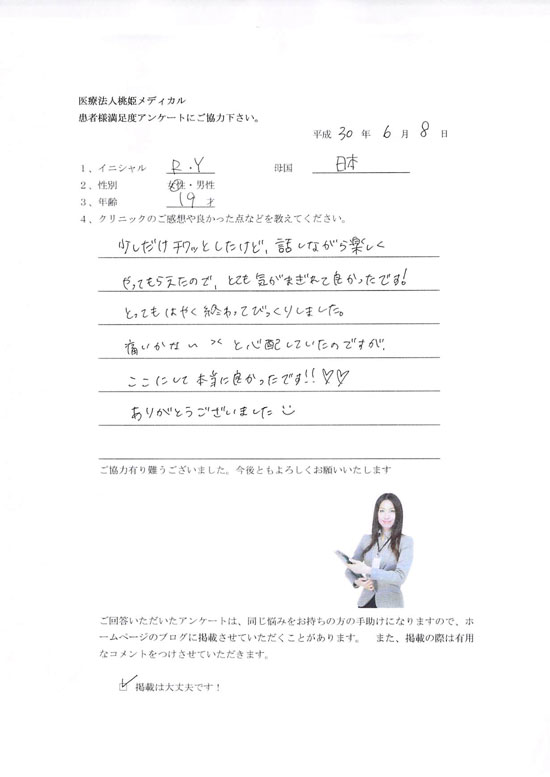 医療法人桃姫メディカル
患者様満足度アンケートにご協力下さい。
平成 30 年 6 月 8 日
1、イニシャル R.Y 母国 日本
2、性別 女性・男性
3、年齢 19 才
4、クリニックのご感想や良かった点などを教えてください。
少しだけチクッとしたけど、話しながら楽しく
やってもらえたので、とても気がまぎれて良かったです!
とってもはやく終わってびっくりしました。
痛いかない ﾍﾍ と心配していたのですが、
ここにして本当に良かったです!!♡♡
ありがとうございました
ご協力有り難うございました。今後ともよろしくお願いいたします
ご回答いただいたアンケートは、同じ悩みをお持ちの方の手助けになりますので、ホ
ームページのブログに掲載させていただくことがあります。 また、掲載の際は有用
なコメントをつけさせていただきます。
☑ 掲載は大丈夫です!